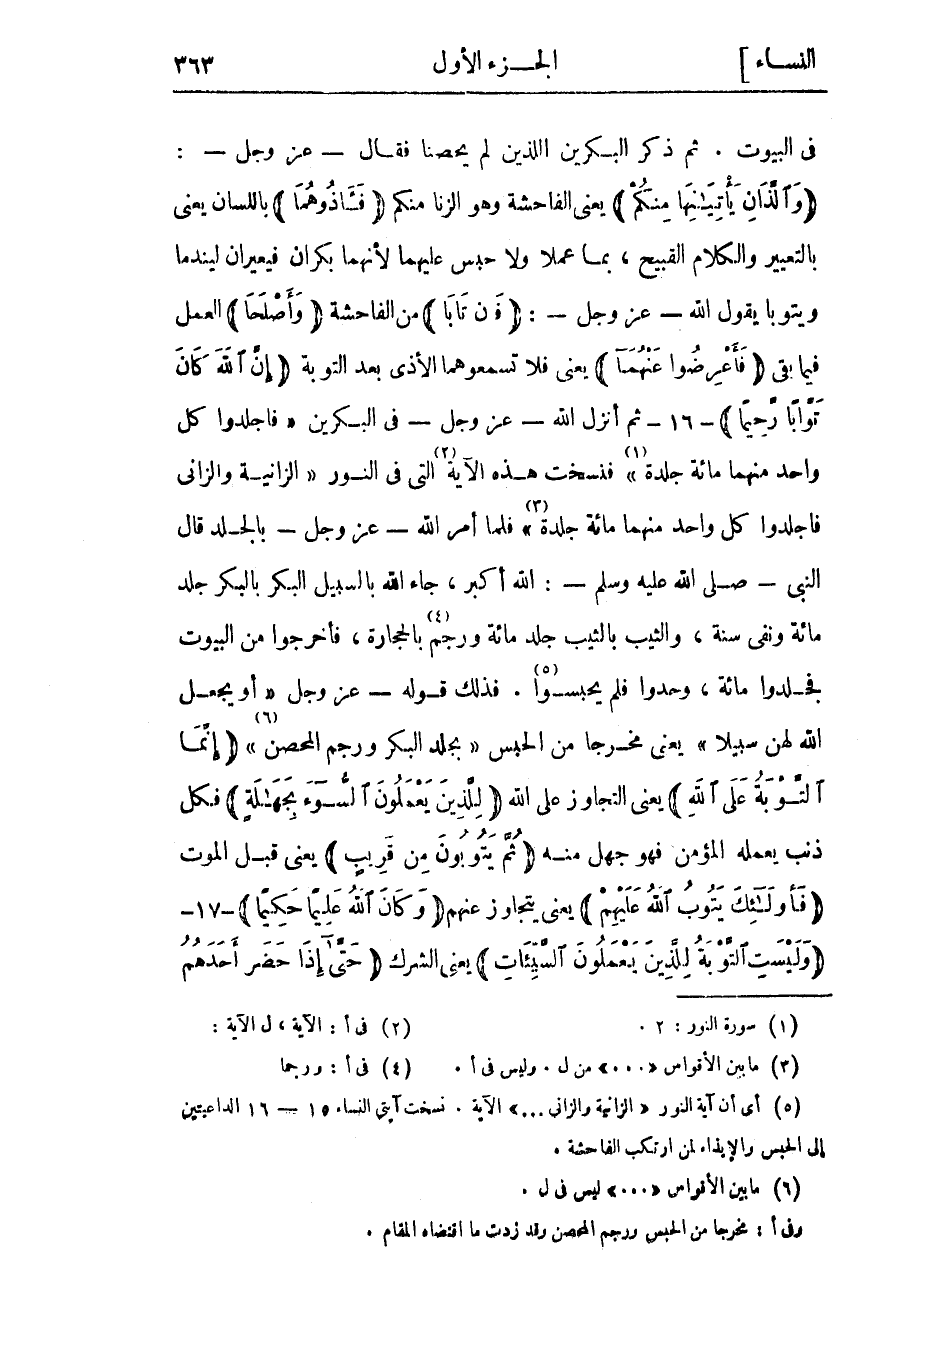 النساء] الجـزء الأول ٣٦٣
فى البيوت . ثم ذكر البـكرين اللذين لم يحصنا فقـال — عز وجل — :
﴿ وَٱلَّذَانِ يَأْتِيَـٰنِهَا مِنكُمْ ﴾ يعنى الفاحشة وهو الزنا منكم ﴿ فَـَٔاذُوهُمَا ﴾ باللسان يعنى
بالتعيير والكلام القبيح ، بمـا عملا ولا حبس عليهما لأنهما بكران فيعيران ليندما
ويتوبا يقول الله — عز وجل — : ﴿ فَإِن تَابَا ﴾ من الفاحشة ﴿ وَأَصْلَحَا ﴾ العمل
فيما بقى ﴿ فَأَعْرِضُوا عَنْهُمَآ ﴾ يعنى فلا تسمعوهما الأذى بعد التوبة ﴿ إِنَّ ٱللَّهَ كَانَ
تَوَّابًا رَّحِيمًا ﴾ - ١٦ - ثم أنزل الله — عز وجل — فى البـكرين « فاجلدوا كل
واحد منهما مائة جلدة (١)» فنسخت هـذه الآية (٢) التى فى النـور « الزانيـة والزانى
فاجلدوا كل واحد منهما مائة جلدة (٣)» فلما أمر الله — عز وجل — بالجـلد قال
النبى — صـلى الله عليه وسلم — : الله أكبر ، جاء الله بالسبيل البكر بالبكر جلد
مائة ونفى سنة ، والثيب بالثيب جلد مائة ورجم (٤) بالحجارة ، فأخرجوا من البيوت
فجـلدوا مائة ، وحدوا فلم يحبسـوا (٥) . فذلك قـوله — عز وجل « أو يجعـل
الله لهن سبيلا » يعنى مخـرجا من الحبس « بجلد البكر ورجم المحصن (٦)» ﴿ إِنَّمَـا
ٱلتَّـوْبَةُ عَلَى ٱللَّهِ ﴾ يعنى التجاوز على الله ﴿ لِلَّذِينَ يَعْمَلُونَ ٱلسُّـوٓءَ بِجَهَـٰلَةٍ ﴾ فـكل
ذنب يعمله المؤمن فهو جهل منـه ﴿ ثُمَّ يَتُوبُونَ مِن قَرِيبٍ ﴾ يعنى قبـل الموت
﴿ فَأُولَـٰٓئِكَ يَتُوبُ ٱللَّهُ عَلَيْهِمْ ﴾ يعنى يتجاوز عنهم ﴿ وَكَانَ ٱللَّهُ عَلِيمًا حَكِيمًا ﴾ -١٧-
﴿ وَلَيْسَتِ ٱلتَّوْبَةُ لِلَّذِينَ يَعْمَلُونَ ٱلسَّيِّئَاتِ ﴾ يعنى الشرك ﴿ حَتَّىٰٓ إِذَا حَضَرَ أَحَدَهُمُ
(١) سورة النور : ٢ . (٢) فى أ : الآية ، ل الآية :
(٣) ما بين الأقواس «...» من ل . وليس فى أ . (٤) فى أ : ورجما
(٥) أى أن آية النور « الزانية والزانى ...» الآية . نسخت آيتى النساء ١٥ — ١٦ الداعيتين
إلى الحبس والإيذاء لمن ارتكب الفاحشة .
(٦) ما بين الأقواس «...» ليس فى ل .
وفى أ : مخرجا من الحبس ورجم المحصن وقد زدت ما اقتضاه المقام .